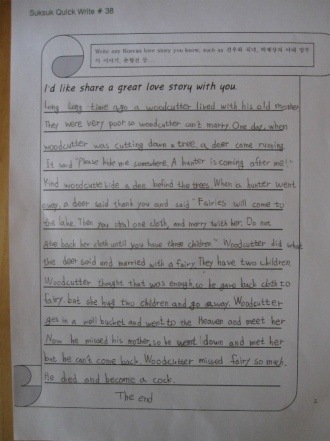 Suksuk Quick Write # 38
Write any Korean love story you know, such as 견우와 직녀, 박제상의 아내
이 이야기, 춘향전 등...
I'd like share a great love story with you.
Long long time ago a woodcutter lived with his old mother
They were very poor so woodcutter can't marry. One day, when
woodcutter was cutting down a tree. a deer came running.
It said "Please hide me somewhere. A hunter is coming after me!"
Kind woodcutte hide a dee behind the trees. When a hunter went
away, a deer said thank you and said "Fairies will come to
the lake. Then you steal one cloth, and merry with her. Do not
give back her cloth until you have three children." Woodcutter did what
the deer said end married with a fairy. They have two children.
Woodcutter thought that was enough, so he gave back cloth to
fairy. but she hug two children and go away. Woodcutter
gets in a well bucket and went to the Heaven and meet her
Now he missed his mother, so he went down and met her
but he can't come back. Woodcutter missed fairy so much.
He died and become a cock.
The end
2